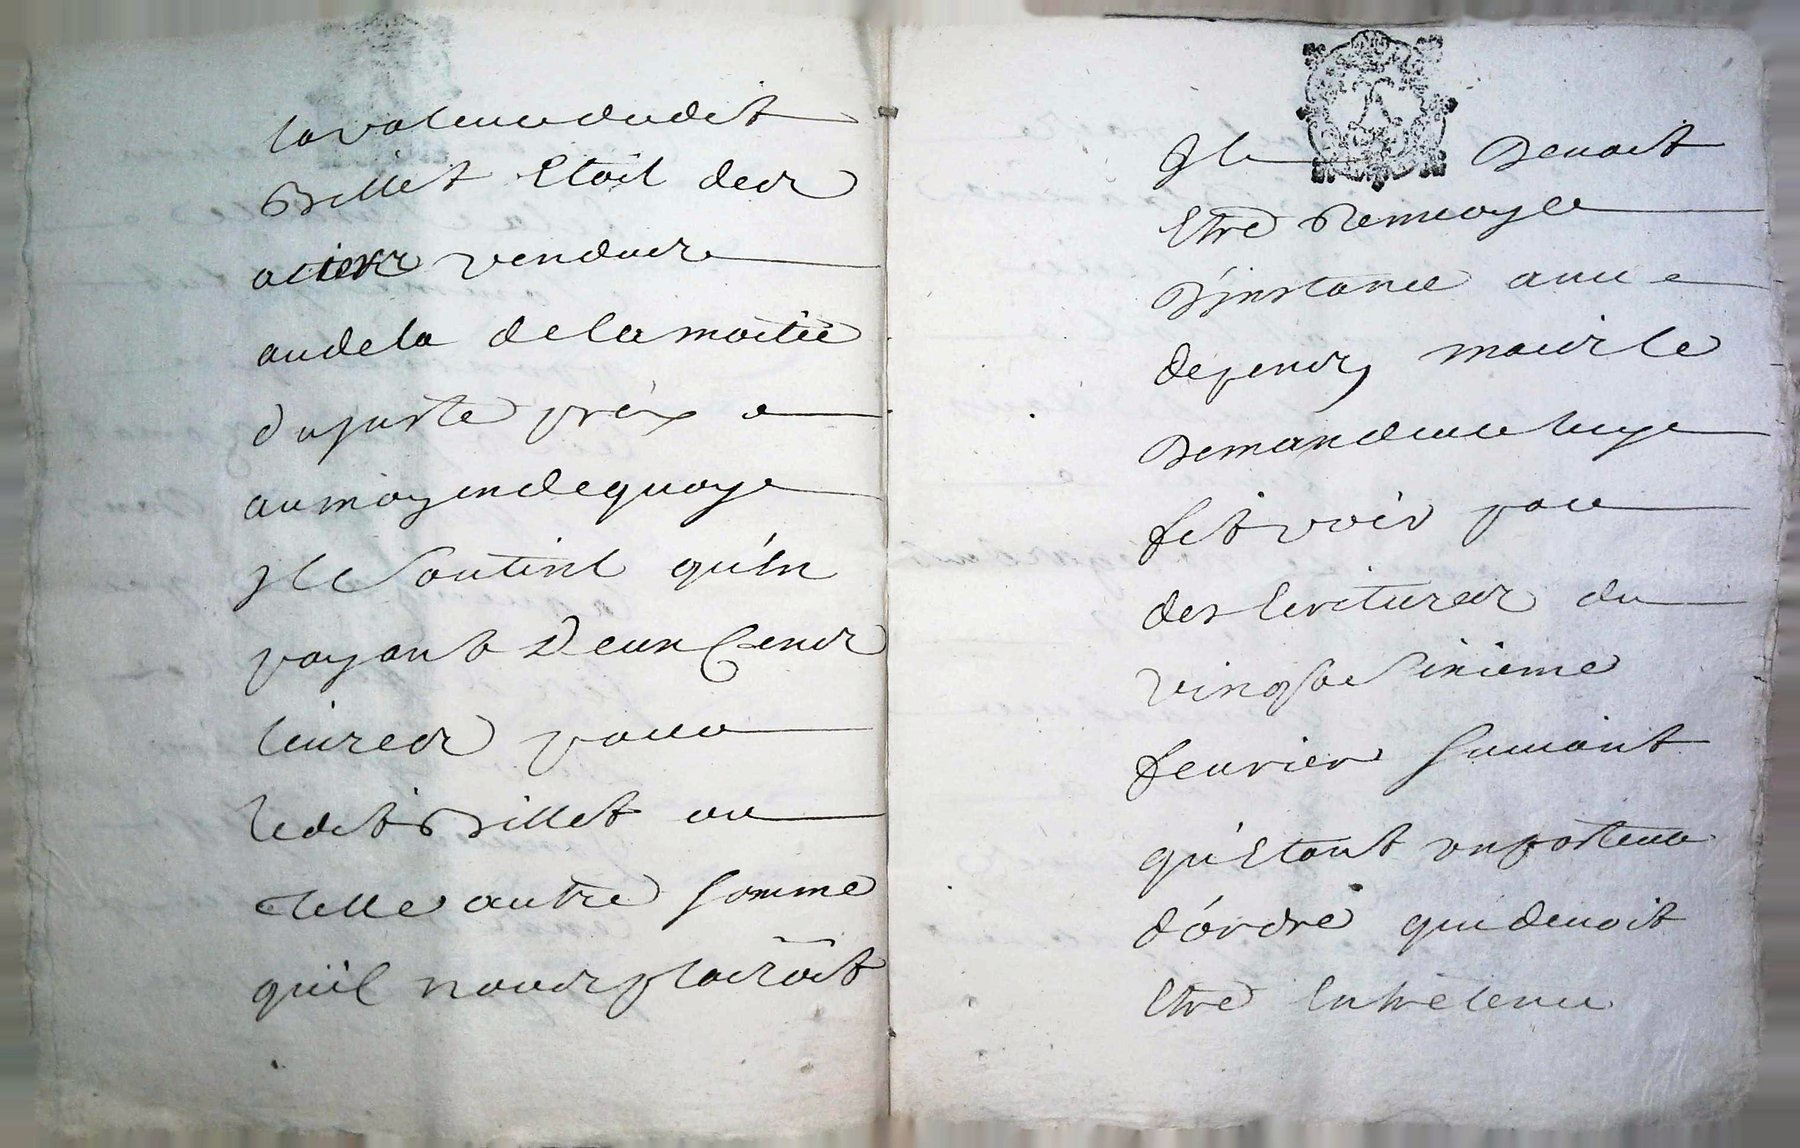 la valeur dudit
Billet Etoit des
actions vendues
audela de la moitié
du juste prix et
au moyen de quoy
jl soutint qu'en
payant Deux Cens
livres pour
ledit Billet ou
telle autre somme
qu'il nous plairoit
jl Devoit
Etre Renvoyé
D'jnstance avec
depens, mais le
Demandeur luy
fit voir par
des Ecritures du
vingt sixieme
fevrier suivant
qu'Etant un porteur
d'ordre qui devoit
Etre Entretenu